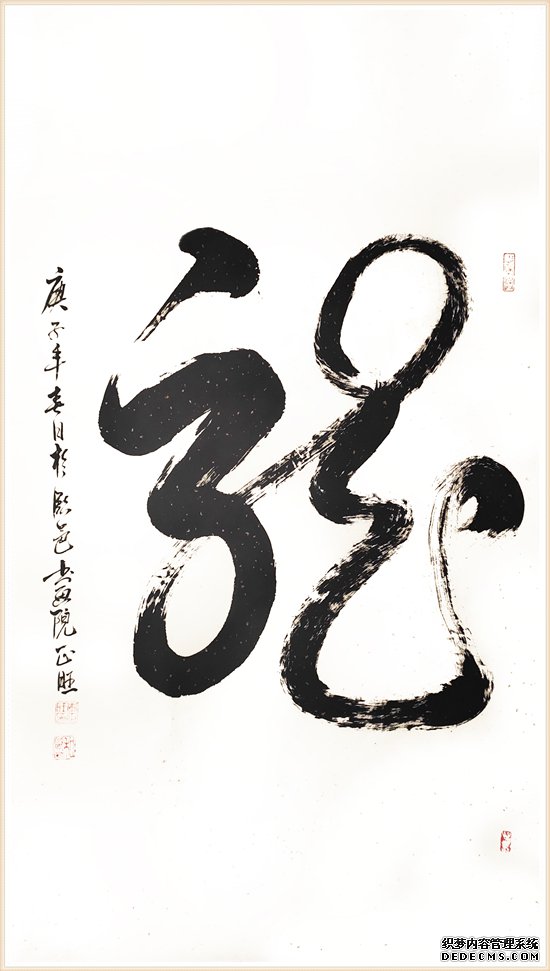 龍
庚子年春日於 書画院 正旺
织梦内容管理系统
DEDECMS.COM